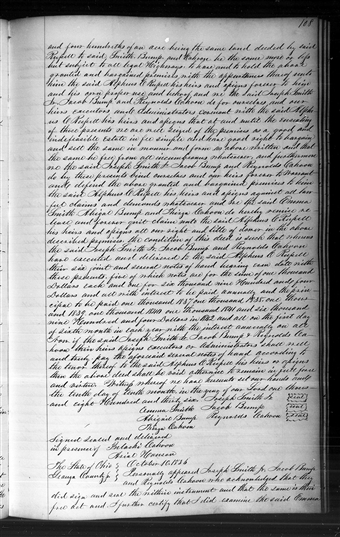 108
and four hundredths of an acre being the same land deeded by said
Russell to said Smith, Bump and Cahoon be the same more or less
but subject to all legal Highways. To have and to hold the above
granted and bargained premises with the appurtenances thereof unto
him the said Alpheus C Russell his heirs and assigns forever to his
and his own proper use and behoof and we the said Joseph Smith
Jr Jacob Bump and Reynolds Cahoon do for ourselves and our
heirs executors and Administrators covenant with the said Alpheus
C Russell his heirs and assigns that at and until the ensealing
of these presents we are well seized of the premises as a good and
indefeasible estate in fee simple and have good right to bargain
and sell the same in manner and form as above written and that
the same be free from all incumbrances whatsoever and furthermore
we the said Joseph Smith Jr Jacob Bump and Reynolds Cahoon
do by these presents bind ourselves and our heirs forever to warrant
and defend the above granted and bargained premises to him
the said Alpheus C Russell his heirs and assigns against all lawful
claims and demands whatsoever and we the said Emma
Smith Abigail Bump and Thirza Cahoon do hereby remise
release and forever quit claim unto the said Alpheus C Russell
his heirs and assigns all our right and title of dower in the above
described premises the condition of this deed is such that whereas
the said Joseph Smith Jr Jacob Bump and Reynolds Cahoon
have executed and delivered to the said Alpheus C Russell
their six joint and several notes of hand bearing even date with
these presents five of which notes are for the sum of one thousand
Dollars each and one for six thousand nine Hundred and four
Dollars and all with interest to be paid annually and the principal
to be paid one thousand 1837 one thousand 1838 one thousand
1839 one thousand 1840 one thousand 1841 and six thousand
nine Hundred and four Dollars in 1842 and all on the first day
of sixth month in each year with the interest annually on all
Now if the said Joseph Smith Jr Jacob Bump & Reynolds Cahoon
their heirs assigns executors or Administrators shall well
and truly pay the aforesaid several notes of hand according to
the tenor thereof to the said Alpheus C Russell his heirs or assigns
then the above deed shall be void otherwise to remain in full force
and virtue Witness whereof we have hereunto set our hands and seals
the tenth day of tenth month in the year of our Lord one thousand
and eight Hundred and thirty six Joseph Smith Jr Seal
Emma Smith Jacob Bump Seal
Abigail Bump Reynolds Cahoon Seal
Thirza Cahoon
Signed sealed and delivered
in presence of Pulaski Cahoon
Ariel Hanson
The State of Ohio } October 10. 1836
Geauga County ss } Personally appeared Joseph Smith Jr, Jacob Bump
and Reynolds Cahoon who acknowledged that they
did sign and seal the within instrument and that the same is their
free act and I further certify that I did examine the said Emma